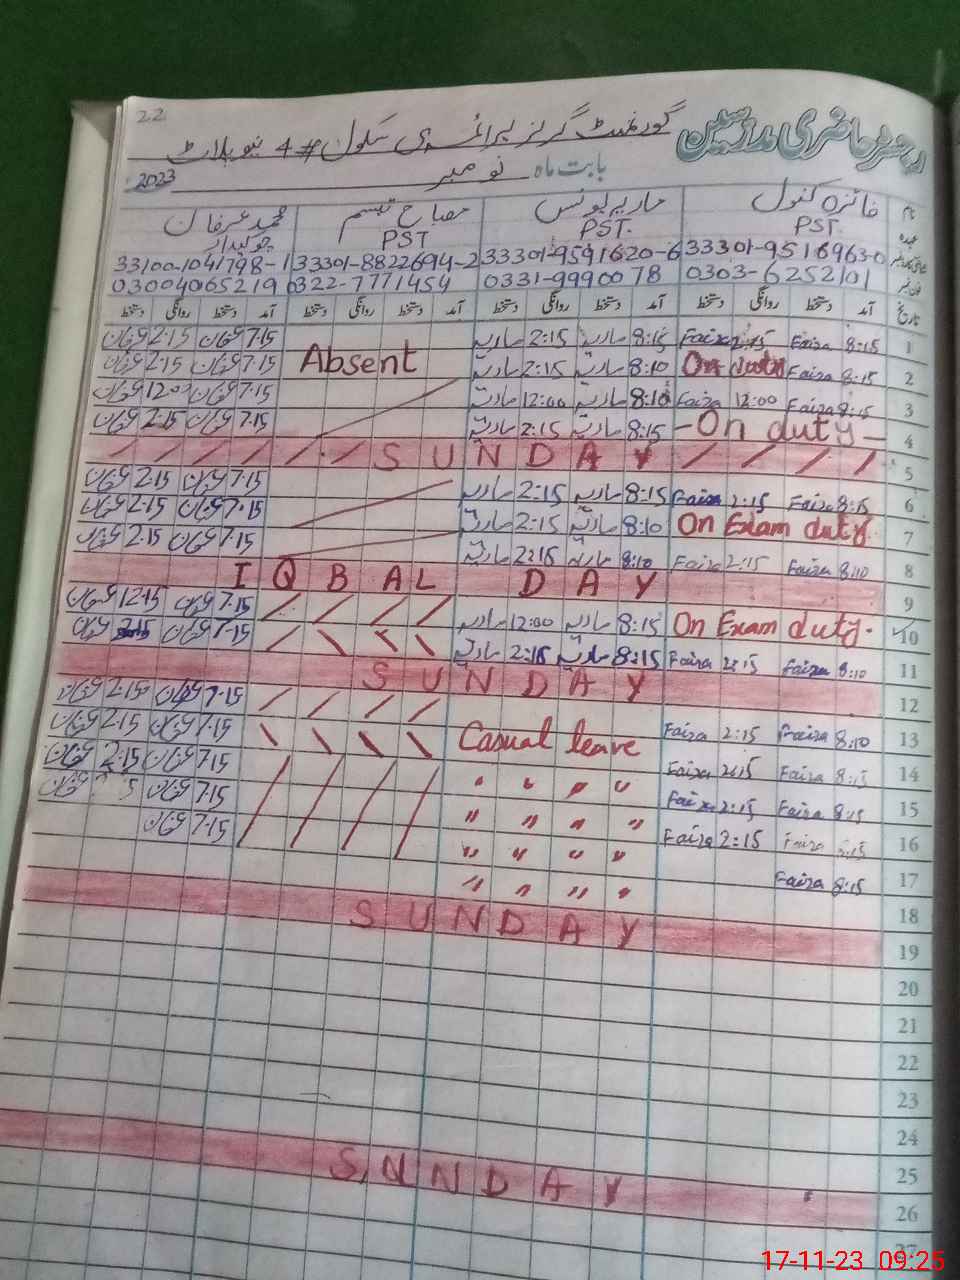 22
رجسٹر حاضری مدرسین
گورنمنٹ گرلز پرائمری سکول # 4 نیو پلاٹ
بابت ماہ نومبر 2023
نام فائزہ کنول ماریہ یونس مصباح تبسم محمد عرفان
عہدہ PST. PST. PST چوکیدار
33301-9516963-0 33301-9591620-6 33301-8822694-2 33100-1041798-1
0303-6252101 0331-9990078 0322-7771454 03004065219
تاریخ آمد دستخط روانگی دستخط آمد دستخط روانگی دستخط آمد دستخط روانگی دستخط
1 8:15 Faiza 2:15 Faiza 8:15 ماریہ 2:15 ماریہ 7.15 عرفان 2.15 عرفان
2 8:15 Faiza On duty 8:10 ماریہ 2:15 ماریہ Absent 7.15 عرفان 2.15 عرفان
3 8:15 Faiza 12:00 Faiza 8:10 ماریہ 12:00 ماریہ 7.15 عرفان 12.00 عرفان
4 - On duty - 8:15 ماریہ 2:15 ماریہ 7.15 عرفان 2.15 عرفان
5 SUNDAY
6 8:15 Faiza 2:15 Faiza 8:15 ماریہ 2:15 ماریہ 7.15 عرفان 2.15 عرفان
7 On Exam duty. 8:10 ماریہ 2:15 ماریہ 7.15 عرفان 2.15 عرفان
8 8:10 Faiza 2:15 Faiza 8:10 ماریہ 2:15 ماریہ 7.15 عرفان 2.15 عرفان
9 IQBAL DAY
10 On Exam duty. 8:15 ماریہ 12:00 ماریہ 7.15 عرفان 12.15 عرفان
11 8:10 Faiza 2:15 Faiza 8:15 ماریہ 2:15 ماریہ 7.15 عرفان 2.15 عرفان
12 SUNDAY
13 8:10 Faiza 2:15 Faiza Casual leave 7.15 عرفان 2.15 عرفان
14 8:15 Faiza 2:15 Faiza " " " " 7.15 عرفان 2.15 عرفان
15 8:15 Faiza 2:15 Faiza " " " " 7.15 عرفان 2.15 عرفان
16 8:15 Faiza 2:15 Faiza " " " " 7.15 عرفان عرفان
17 8:15 Faiza " " " " 7.15 عرفان
18
19 SUNDAY
20
21
22
23
24
25
26 SUNDAY
27
17-11-23 09:25